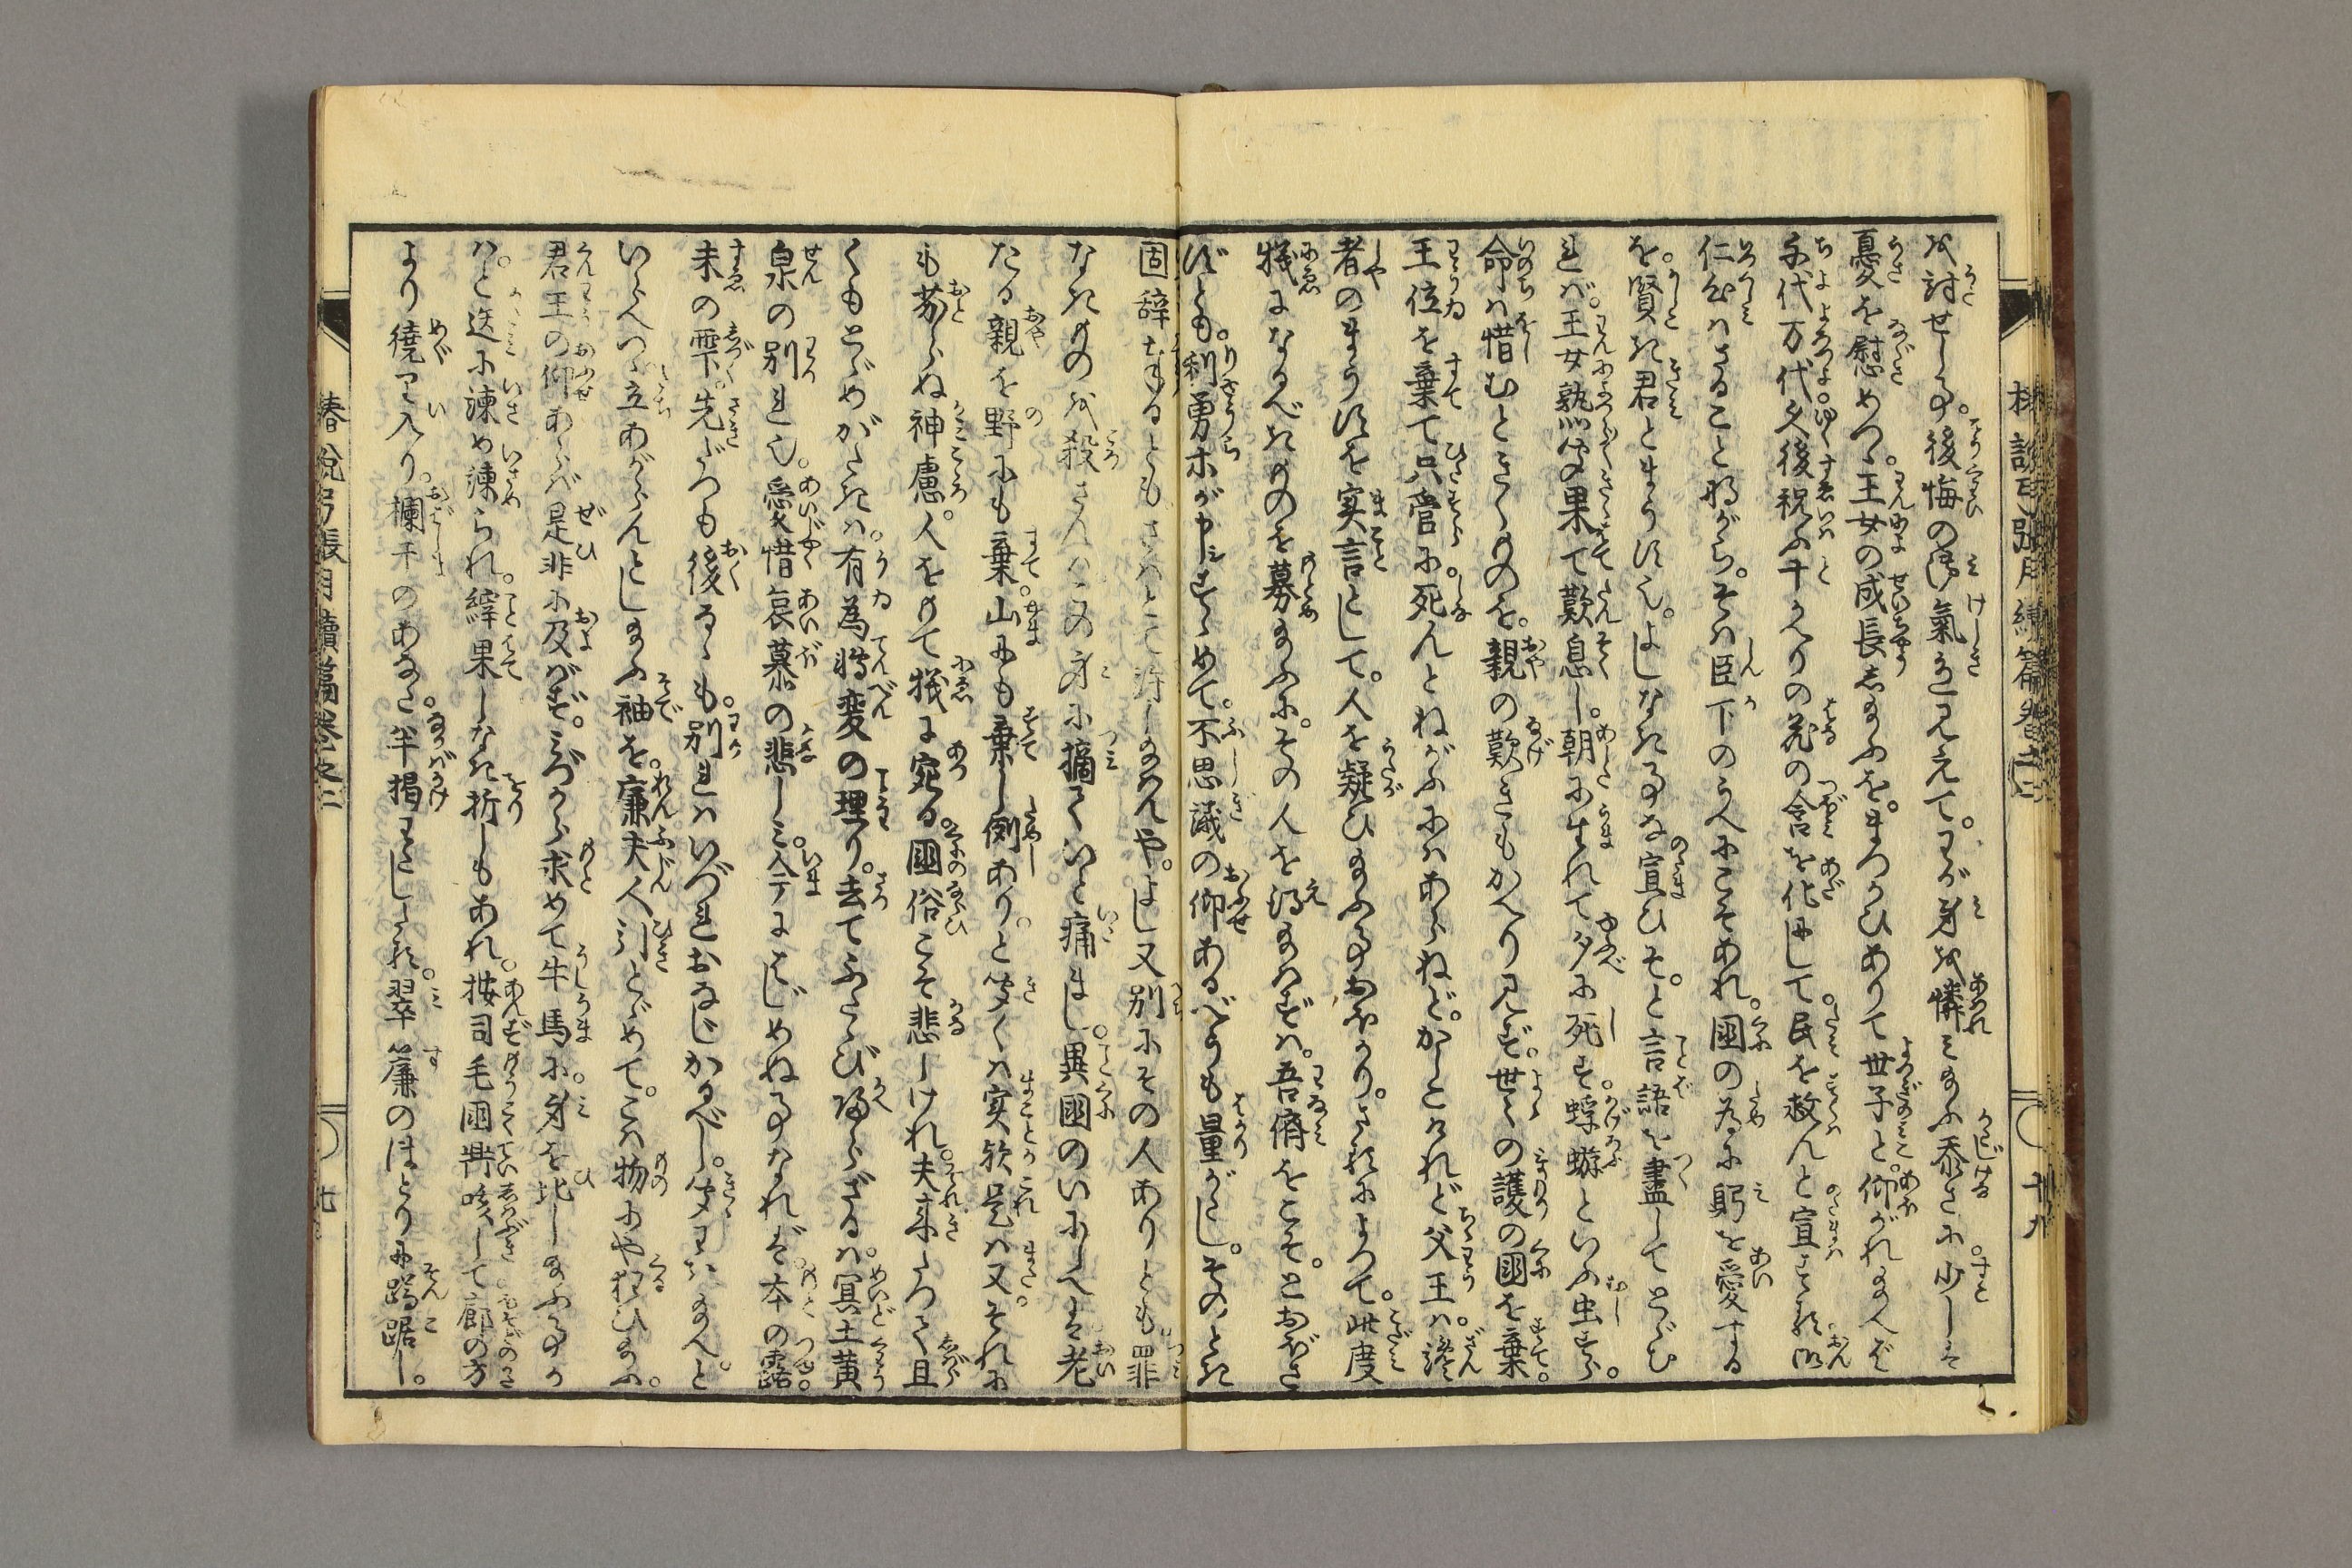 を討せし事。後悔の御氣色見えて。わが身を憐みまふ忝さに。少しは
憂を慰めつゝ。王女の成長しまふを。まつかひありて世子と。仰がれまへば
千代万代々。後祝ふ千かへりの花の含を化にして。民を救んと宣はする御
仁心はさることながら。そは臣下のうへにこそあれ。國の為に躬を愛する
を。賢き君とまうす也。よしなき事な宣ひそ。と言語を盡してとゞむ
れば。王女熟々聞果て歎息し。朝に生れて夕に死す。蜉蝣といふ虫すら。
命は惜むときくものを。親の歎きもかへり見ず。世々の護の國を棄。
王位を棄て只管に。死んとねがふにはあらねど。かしこけれど父王は。讒
者のまうすを実言として。人を疑ひまふ事おほかり。されによつて。此度
犠になるべきものを募まふに。その人を得まはずは。吾儕をこそ。とおぼさ
ずとも。利勇ホが申すゝめて。不思議の仰あるべうも量がたし。そのとき
固辞まうるともさはとて許しまはんや。よし又別にその人ありとも。罪
なきものを殺さんはこの身に摘ていと痛まし。異國のいにしへは老
たる親を野にも棄。山にも棄し例あり。と聞くは実歟是は又それに
も劣らぬ神慮。人をもて犠に宛る。國俗こそ悲しけれ。夫来たつて且
くもとゞめがたきは。有為轉変の理り。去てふたゝび還らざるは。冥土黄
泉の別れ也。愛惜哀慕の悲しみ。今にはじめぬ事なれど。本の露。
末の雫。先だつも後るゝも。別れはいづれおなじかるべし。聞わきまへと
いらへつゝ立あがらんとしまふ袖を。廉夫人引とゞめて。こは物にや狂ひまふ。
君王の仰あらば是非に及ばず。みづから求めて牛馬に。身を比しまふ事か
は。と迭に諫め諫られ。縡果しなき折しもあれ。按司毛國鼎咳して廊の方
より繞り入り。欄干のあなた。半掲わたしたる。翠簾のほとりに蹲踞し。
椿説弓張月續篇巻之二
十九
椿説弓張月續篇巻之二
廿